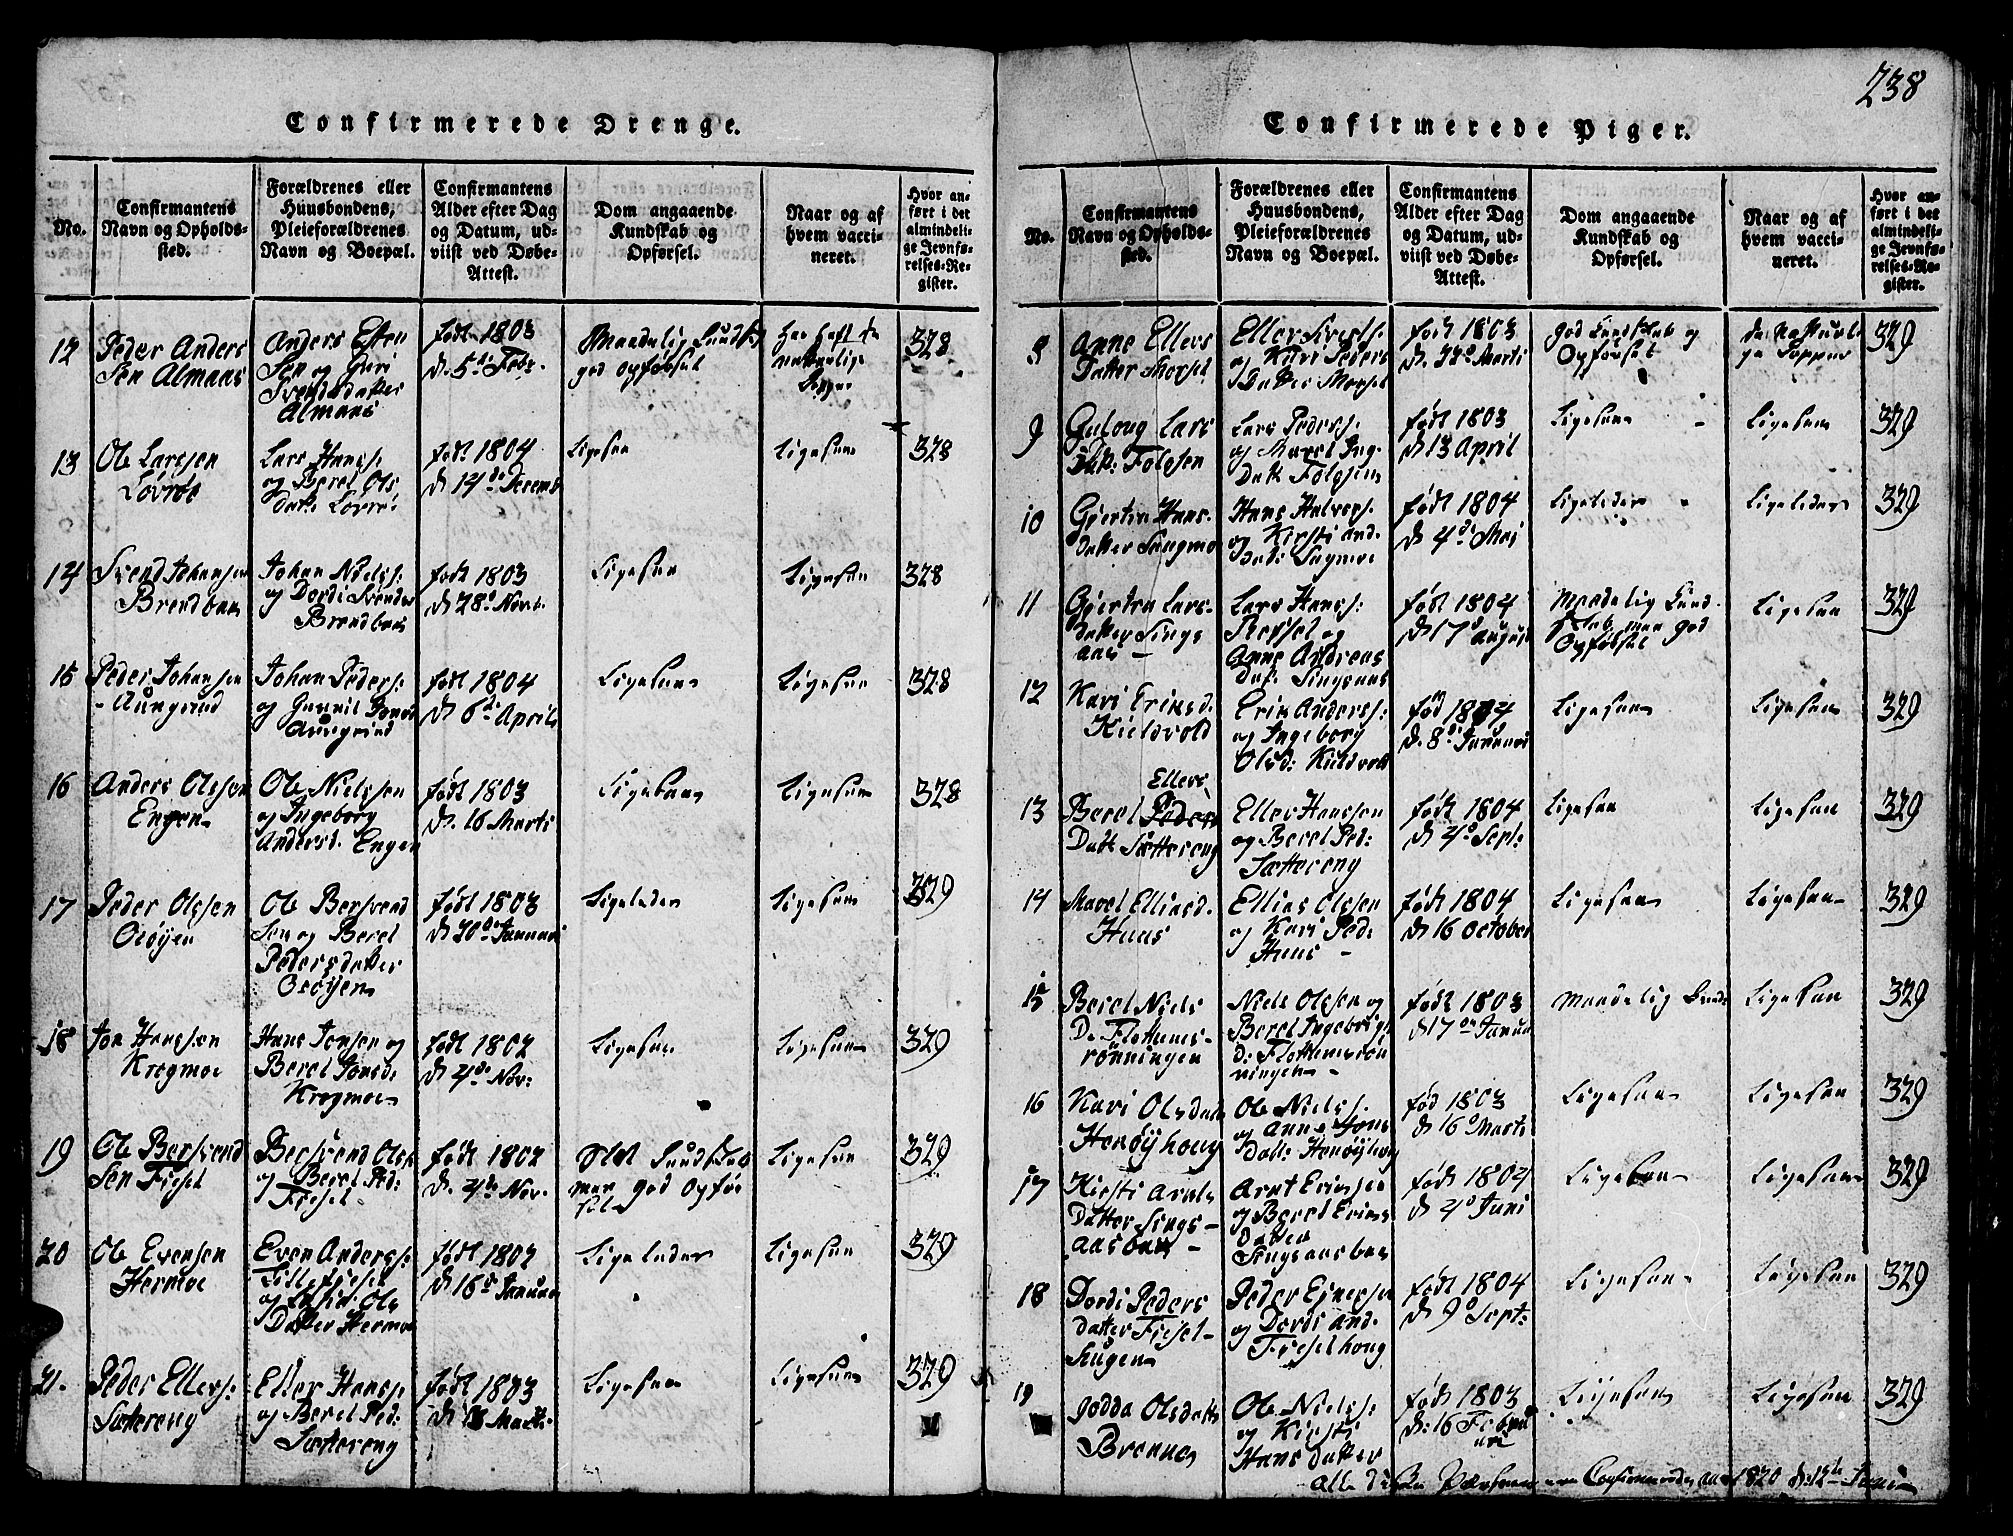 238
Confirmerede Drenge.
No.
Confirmantens
Navn og Opholds-
sted.
Forældrenes eller
Huusbondens,
Pleieforældrenes
Navn og Boepæl.
Confirmantens
Alder efter Dag
og Datum, ud-
viist ved Døbe-
Attest.
Dom angaaende
Kundskab og
Opførsel.
Naar og af
hvem vacci-
neret.
Hvor an-
ført i det
almindeli-
ge Jevnfø-
relses-Re-
gister.
12
Peder Anders
Sen Almaas
Anders Esten
Sen og Guri
Svendsdatter
Almaas
født 1803
d. 5te Febr.
Maadelig Kundsk
god opførsel
har haft de
naturlige
328
13
Ole Larssen
Lovrøe
Lars Hanss:
og Beret Ols
datt: Lovrø
født 1804
d. 14de Decemb
Ligesaa
Ligesaa
328
14
Svend Johansen
Brendbaas
Johan Niels:
og Dordi Svends
Brendbaas
født 1803
d. 28de Novb.
Ligesaa
Ligesaa
328
15
Peder Johansen
Aungrind
Johan Peders:
og Gunnil Jonsd
Aungrind
født 1804
d. 6te Aprili
Ligesaa
Ligesaa
328
16
Anders Olssen
Engen
Ole Nielssen
og Ingeborg
Andersd. Engen
født 1803
d. 16 Marti
Ligesaa
Ligesaa
328
17
Peder Olssen
Osøyen
Ole Bersvend
Sen og Beret
Pedersdatter
Osøyen
født 1803
d. 20de Januari
Ligeledes
Ligesaa
329
18
Jon Hanssen
Krogmoe
Hans Jonsen og
Beret Jonsd:
Krogmoe
født 1802
d. 4de Nov:
Ligesaa
Ligesaa
329
19
Ole Bersvend
Sen Fiesel
Bersvend Olss
og Beret Ped:
Fiesel
født 1802
d. 4de Nov.
Slet Kundskab
men god Opfør
sel
Ligesaa
329
20
Ole Evensen
Hermoe
Even Anderss:
og Ols
Datter Hermoe
født 1802
d. 16de Januari
Ligeledes
Ligesaa
329
21.
Peder Ellers:
Sættereng
Eller Hanss:
og Beret Ped:
Sættereng
født 1803
d. 18 Marti
Ligesaa
Ligesaa
329
Confirmerede Piger.
No.
Confirmantens
Navn og Opholds-
sted.
Forældrenes eller
Huusbondens,
Pleieforældrenes
Navn og Boepæl.
Confirmantens
Alder efter Dag
og Datum, ud-
viist ved Døbe-
Attest.
Dom angaaende
Kundskab og
Opførsel.
Naar og af
hvem vacci-
neret.
Hvor an-
ført i det
almindeli-
ge Jevnfø-
relses-Re-
gister.
8
Anne Ellers
Datter Morset
Eller Siverts:
og Kari Peders
Datter Morset
født 1803
Marti
god Kundskab og
Opførsel
de Naturli
ge Kopper
329
9
Gulong Lars
Datt: Folgsen
Lars Pederss:
og Maret Ing
Datt Folgsen
født 1803
d 13 April
Ligesaa
Ligesaa
329
10
Gjertru Hans
datter Sungmo
Hans Halvors:
og Kirsti And.
født 1804
d 4de Maj
Ligeledes
Ligeledes
329
11
Gjertru Lars-
datter Sings
aas
Lars Hanss:
og
Anne Andreas
Dat: Singsaas
født 1804
d 17de August
Maadelig Kund
skab men god
Opførsel
Ligesaa
329
12
Kari Ericsd.
Kielsvold
Eric Anderss:
og Ingeborg
Olsd: Kielsvold
fød 1804
d. 8de Januari
Ligesaa
Ligesaa
329
13
Ellers
Beret Peders
Datt Sættereng
Eller Hanssen
og Beret Ped:
Sættereng
født 1804
d 4de Sept:
Ligesaa
Ligesaa
329
14
Maret Elliasd.
Huus
Ellias Olssen
og Kari Ped:
Huus
født 1804
d 16 October
Ligesaa
Ligesaa
329
15
Beret Niels
D. Flottums-
rønningen
Niels Olssen og
Beret Ingebrigt
d: Flottumsrøn
ningen
født 1803
d 17de Januar
Maadelig Kunds
Ligesaa
329
16
Kari Olsdatt
Henøyhoug
Ole Nielss.
og Anne Jons
Datt: Henøyhoug
fød 1803
d 16de Marti
Ligesaa
Ligesaa
329
17
Kirsti Arnts
Datter Sings-
aasbaas
Arnt Ericsen
og Beret Erics
Datter
Singsaasbaas
født 1804
d 4de Juni
Ligesaa
Ligesaa
329
18
Dordi Peders
datter Fiesel-
hugen
Peder Ejnersen
og Dordi And.
Fieselhoug
født 1804
d 9de Sept:
Ligesaa
Ligesaa
329
19
Jodda Olsdatt
Brenna
Ole Niels:
og Kirsti
Hans datter
født 1803
d: 16 Febru
ari
Ligesaa
Ligesaa
329
alle disse Personer ere Confirmerede 1820 d: 12te Juni